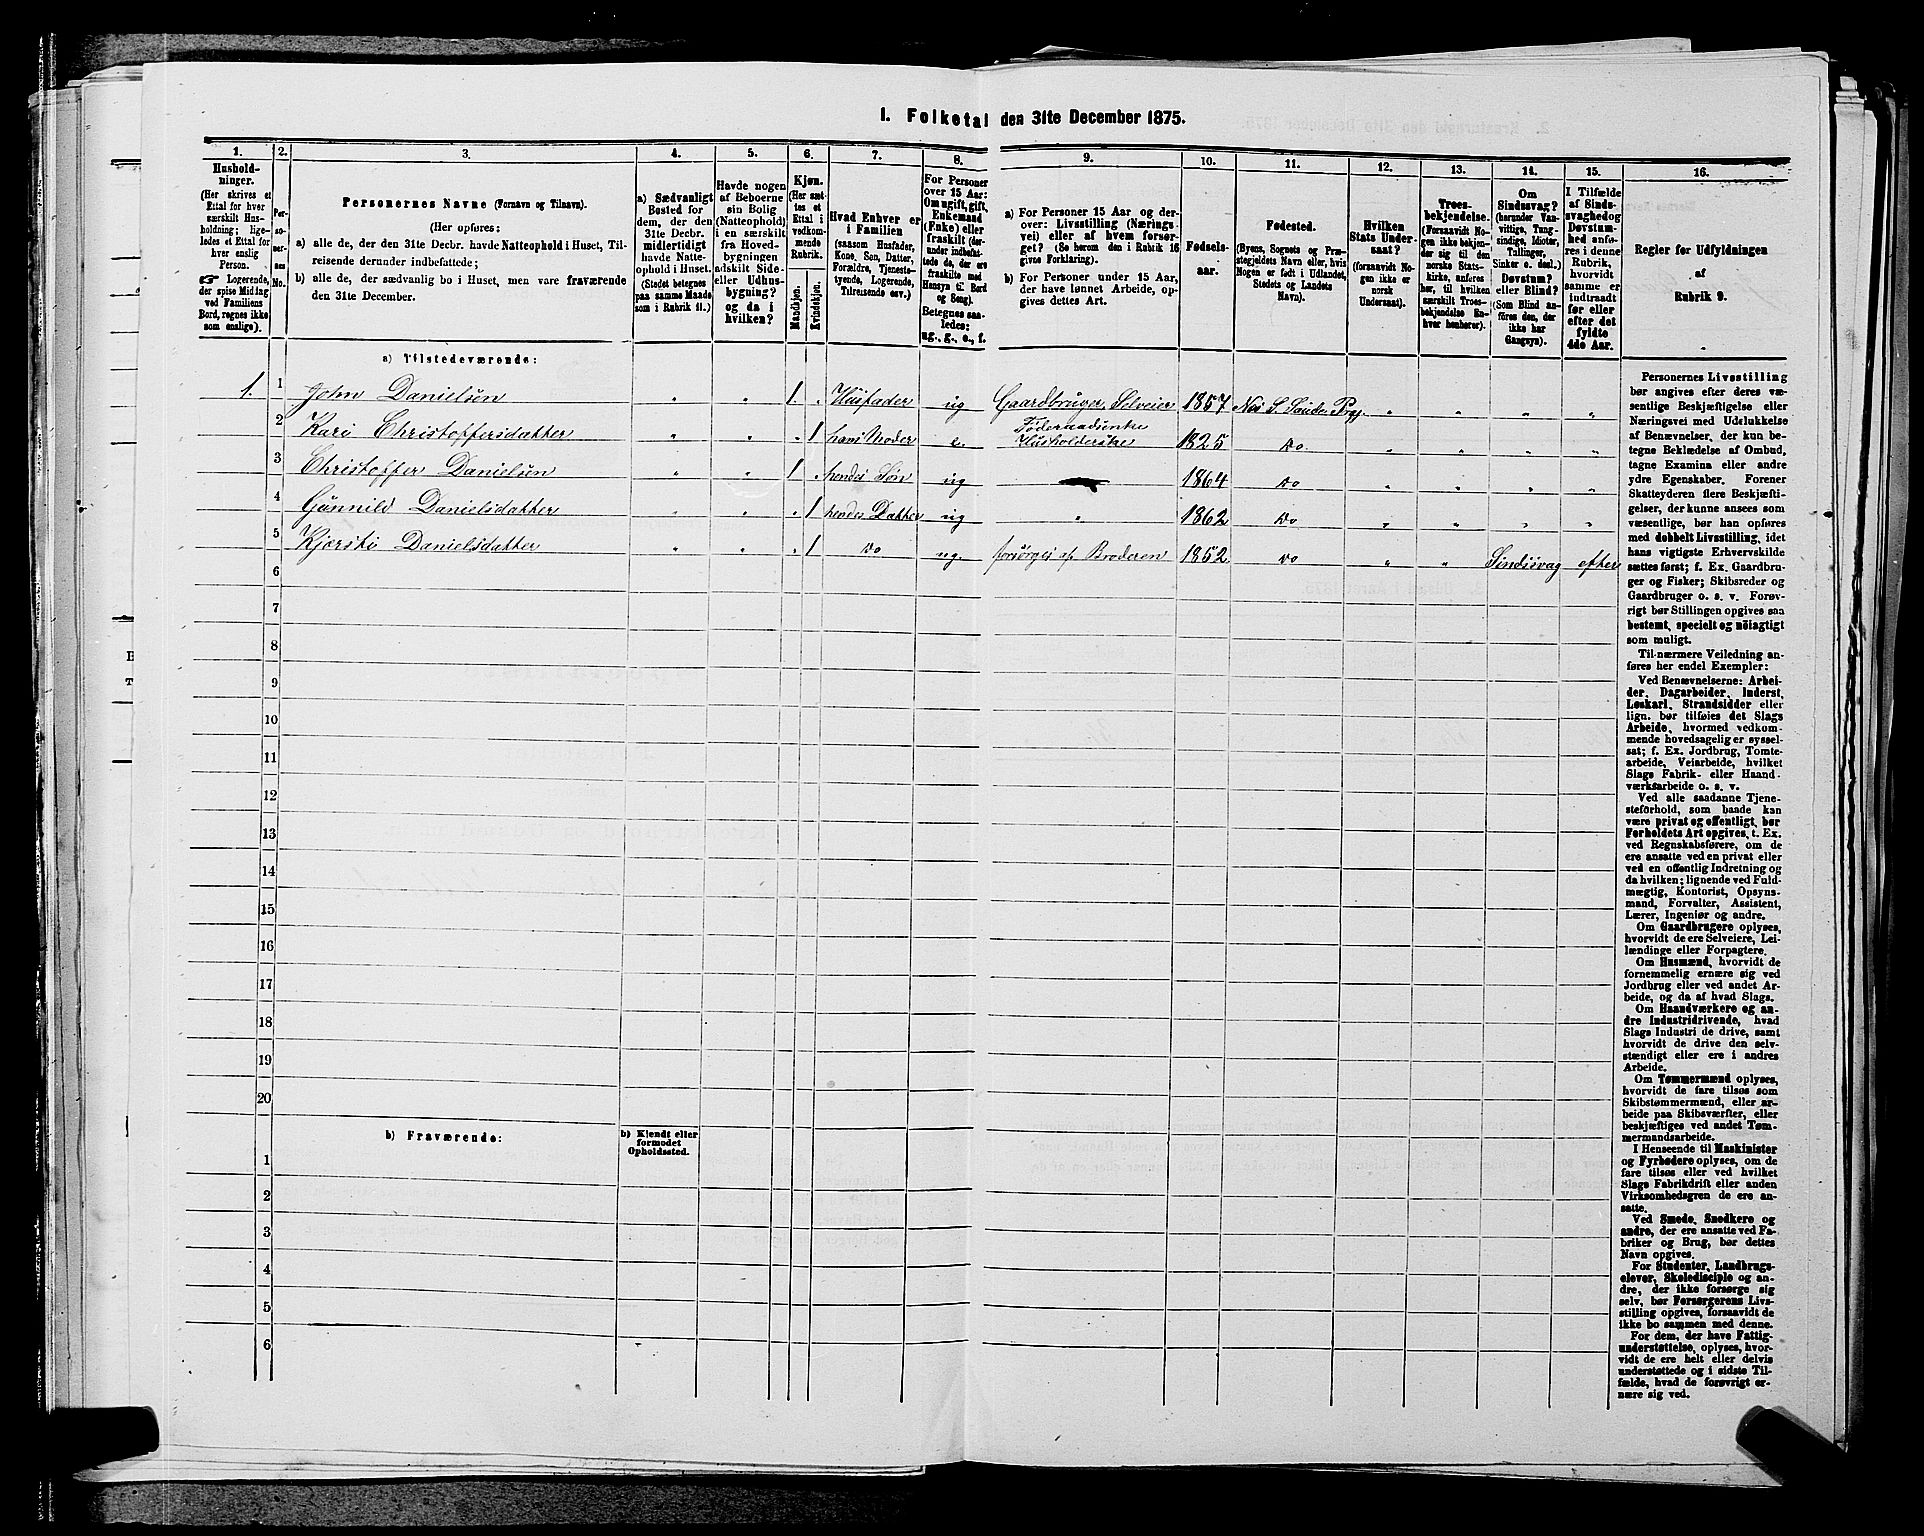 I. Folketal den 31te December 1875.
1. 2. 3. 4. 5. 6. 7. 8. 9. 10. 11. 12. 13. 14. 15. 16.
Hushold-
ninger.
(Her skrives et
Ettal for hver
særskilt Hus-
holdning; lige-
ledes et Ettal for
hver enslig
Person.
☞ Logerende,
der spise Middag
ved Familiens
Bord, regnes ikke
som enslige).
Per-
so-
ner-
nes
No.
Personernes Navne (Fornavn og Tilnavn).
(Her opføres:
a) alle de, der den 31te Decbr. havde Natteophold i Huset, Til-
reisende derunder indbefattede;
b) alle de, der sædvanlig bo i Huset, men vare fraværende
den 31te December.
a) Sædvanligt
Bosted for
dem, der den
31te Decbr.
midlertidigt
havde Natte-
ophold i Huset.
(Stedet betegnes
paa samme Maade
som i Rubrik 11.)
Havde nogen
af Beboerne
sin Bolig
(Natteophold)
i en særskilt
fra Hoved-
bygningen
adskilt Side-
eller Udhus-
bygning?
og da i
hvilken?
Kjøn.
(Her sæt-
tes et
Ettal i
vedkom-
mende
Rubrik.
Mandkjøn.
Kvindekjøn.
Hvad Enhver er
i Familien
(saasom Husfader,
Kone, Søn, Datter,
Forældre, Tjeneste-
tyende, Logerende,
Tilreisende osv.)
For Personer
over 15 Aar:
Om ugift, gift,
Enkemand
(Enke) eller
fraskilt (der-
under indbefat-
tede de, der ere
fraskilte med
Hensyn til Bord
og Seng).
Betegnes saa-
ledes:
ug., g., e., f.
a) For Personer 15 Aar og der-
over: Livsstilling (Nærings-
vei) eller af hvem forsør-
get? (Se herom den i Rubrik 16
givne Forklaring).
b) For Personer under 15 Aar,
der have lønnet Arbeide, op-
gives dettes Art.
Fødsels-
aar.
Fødested.
(Byens, Sognets og Præ-
stegjeldets Navn eller, hvis
Nogen er født i Udlandet,
Stedets og Landets
Navn).
Hvilken
Stats Under-
saat?
(forsaavidt No-
gen ikke er
norsk
Undersaat).
Troes-
bekjendelse.
(Forsaavidt No-
gen ikke bekjen-
der sig til den
norske Stats-
kirke, anføres
her, til hvilken
særskilt Troes-
bekjendelse En-
hver henhører).
Om
Sindssvag?
(herunder Van-
vittige, Tung-
sindige, Idioter,
Tullinger,
Sinker o. desl.)
Døvstum?
eller Blind?
(Som Blind an-
føres den, der
ikke har
Gangsyn).
I Tilfælde
af Sinds-
svaghed og
Døvstum-
hed anfø-
res i denne
Rubrik,
hvorvidt
samme er
indtraadt
før eller
efter det
fyldte
4de Aar.
Regler for Udfyldningen
af
Rubrik 9.
a) Tilstedeværende:
1. 1 John Danielsen " " 1. " Husfader ug Gaardbruger, Selveier 1857 Næs S. Saude Prgj. " " " "
2 Kari Christoffersdatter " " " 1 hans Moder e. Föderaadsenke Husholderske 1825 Do " " " "
3 Christoffer Danielsen " " 1 " hendes Søn ug 1864 Do " " " "
4 Gunnild Danielsdatter " " " 1 hendes Datter ug " 1862 Do " " " "
5 Kjersti Danielsdatter " " " 1 Do ug. forsørges af Broderen 1852 Do " " Sindssvag efter
6
7
8
9
10
11
12
13
14
15
16
17
18
19
20
b) Fraværende:
b) Kjendt eller
formodet
Opholdssted.
1
2
3
4
5
6
Personernes Livsstilling
bør angives efter deres væ-
sentlige Beskjæftigelse eller
Næringsvei med Udelukkelse
af Benævnelser, der kun be-
tegne Beklædelse af Ombud,
tagne Examina eller andre
ydre Egenskaber. Forener
Skatteyderen flere Beskjæfti-
gelser, der kunne ansees som
væsentlige, bør han opføres
med dobbelt Livsstilling, idet
hans vigtigste Erhvervskilde
sættes først; f. Ex. Gaardbru-
ger og Fisker; Skibsreder og
Gaardbruger o. s. v. Forøv-
rigt bør Stillingen opgives saa
bestemt, specielt og nöiagtigt
som muligt.
Til nærmere Veiledning an-
føres her endel Exempler:
Ved Benævnelserne: Arbei-
der, Dagarbeider, Inderst,
Løskarl, Strandsidder eller
lign. bør tilføies det Slags
Arbeide, hvormed vedkom-
mende hovedsagelig er syssel-
sat; f. Ex. Jordbrug, Tomte-
arbeide, Veiarbeide, hvilket
Slags Fabrik- eller Haand-
værksarbeide o. s. v.
Ved alle saadanne Tjene-
steforhold, som baade kan
være privat og offentligt, bør
Forholdets Art opgives, t. Ex.
ved Regnskabsførere, om de
ere ansatte ved en privat eller
ved en offentlig Indretning og
da hvilken; lignende ved Fuld-
mægtig, Kontorist, Opsyns-
mand, Forvalter, Assistent,
Lærer, Ingeniør og andre.
Om Gaardbrugere oplyses,
hvorvidt de ere Selveiere, Lei-
lændinge eller Forpagtere.
Om Husmænd, hvorvidt de
fornemmelig ernære sig ved
Jordbrug eller ved andet Ar-
beide, og da af hvad Slags.
Om Haandværkere og an-
dre Industridrivende, hvad
Slags Industri de drive, samt
hvorvidt de drive den selv-
stændigt eller ere i andres
Arbeide.
Om Tømmermænd oplyses,
hvorvidt de fare tilsøs som
Skibstømmermænd, eller ar-
beide paa Skibsværfter, eller
beskjæftiges ved andet Tøm-
mermandsarbeide.
I Henseende til Maskinister
og Fyrbødere oplyses, om de
fare tilsøs eller ved hvilket
Slags Fabrikdrift eller anden
Virksomhedsgren de ere an-
satte.
Ved Smede, Snedkere og
andre, der ere ansatte ved Fa-
briker og Brug, bør dettes
Navn opgives.
For Studenter, Landbrugs-
elever, Skoledisciple og an-
dre, der ikke forsørge sig
selv, bør Forsørgerens Livs-
stilling opgives, forsaavidt de
ikke bo sammen med denne.
For dem, der have Fattig-
understøttelse, oplyses, hvor-
vidt de ere helt eller delvis
understøttede og i sidste Til-
fælde, hvad de forøvrigt er-
nære sig ved.